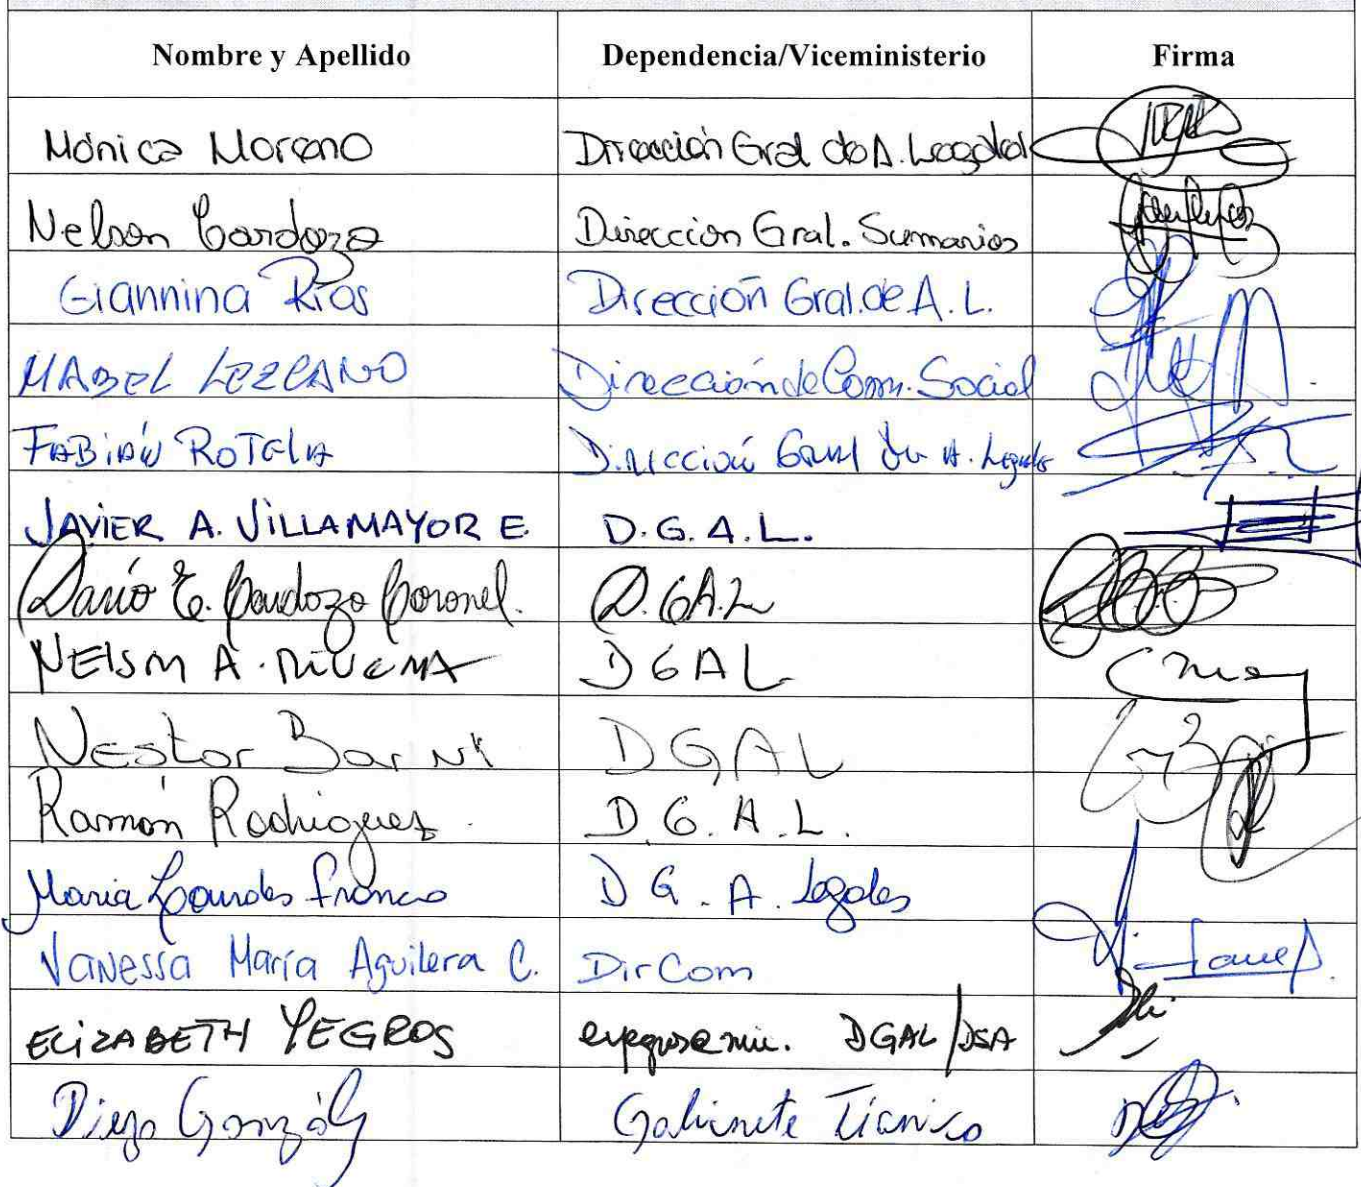 Nombre y Apellido Dependencia/Viceministerio Firma
Mónica Moreno Dirección Gral de A. Legales
Nelson Cardozo Dirección Gral. Sumarios
Giannina Ríos Dirección Gral. de A. L.
MABEL LEZCANO Dirección de Com. Social
FABIÁN ROTELA Dirección Gral de A. Legales
JAVIER A. VILLAMAYOR E. D.G.A.L.
Darío E. Cardozo Coronel. D.GA.L
NELSON A. RIVERA DGAL
Nestor Barni DGAL
Ramón Rodriguez D.G.A.L.
Maria Lourdes Franco D G. A. Legales
Vanessa María Aguilera C. DirCom
ELIZABETH YEGROS DGAL/DSA
Diego González Gabinete Técnico